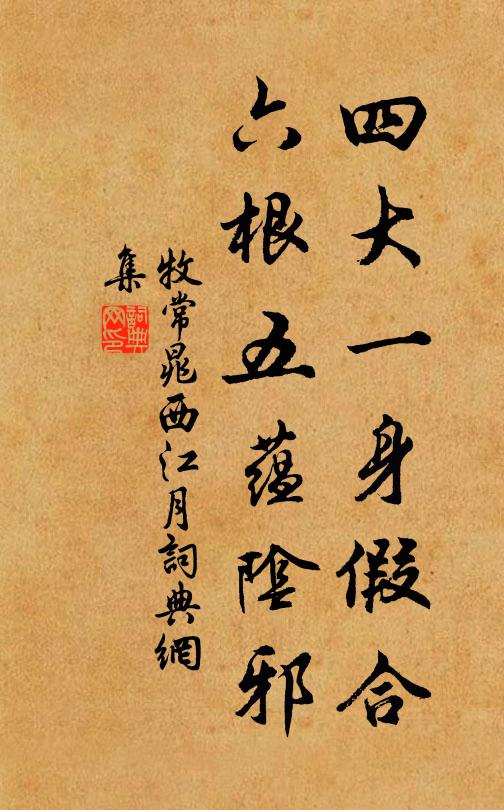 四大一身假合
六根五蕴陰邪
牧常晁西江月詞典網
集
詞典
网印